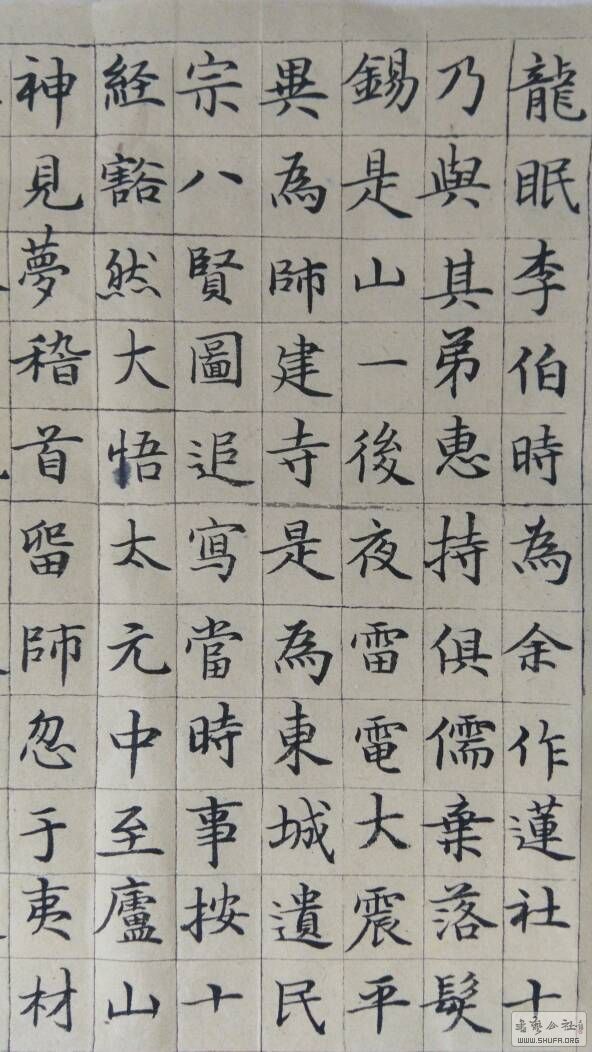 龍眠李伯時為余作蓮社十
乃與其弟惠持俱儒棄落髮
錫是山一後夜雷電大震平
異為師建寺是為東城遺民
宗八賢圖追寫當時事按十
経豁然大悟太元中至廬山
神見夢稽首留師忽于夷材
書藝公社
WWW.SHUFA.ORG